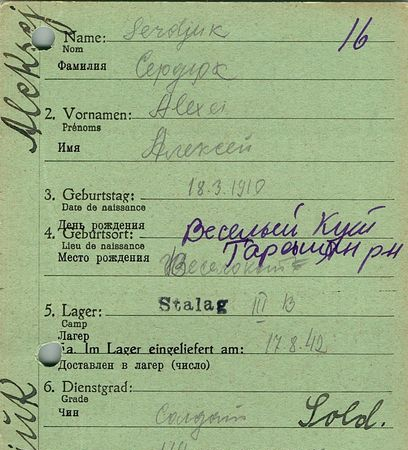 Aleksej
16
Name: Serdjuk
Nom
Фамилия Сердюк
2. Vornamen: Alexei
Prénoms
Имя Алексей
3. Geburtstag: 18.3.1910
Date de naissance
День рождения
4. Geburtsort: Веселый Кут
Lieu de naissance Таращан рн
Место рождения
5. Lager: Stalag III B
Camp
Лагер
5a. Im Lager eingeliefert am: 17.8.42
Доставлен в лагер (число)
6. Dienstgrad: Sold.
Grade
Чин Солдат